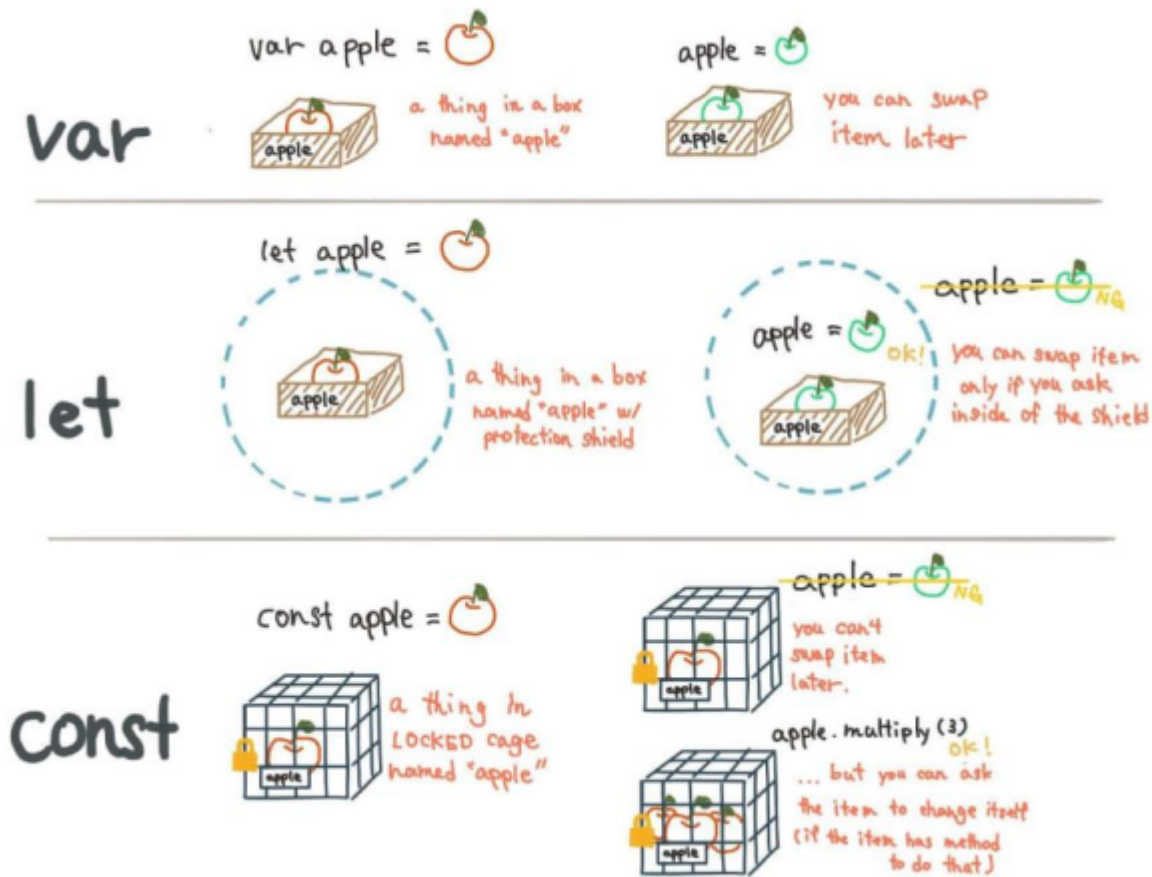 var
var apple =
apple
a thing in a box
named "apple"
apple =
apple
you can swap
item later
let
let apple =
apple
a thing in a box
named "apple" w/
protection shield
apple =
OK!
apple
apple =
NG
you can swap item
only if you ask
inside of the shield
const
const apple =
apple
a thing in
LOCKED cage
named "apple"
apple =
NG
apple
you can't
swap item
later.
apple.multiply(3)
OK!
apple
... but you can ask
the item to change itself
(if the item has method
to do that)